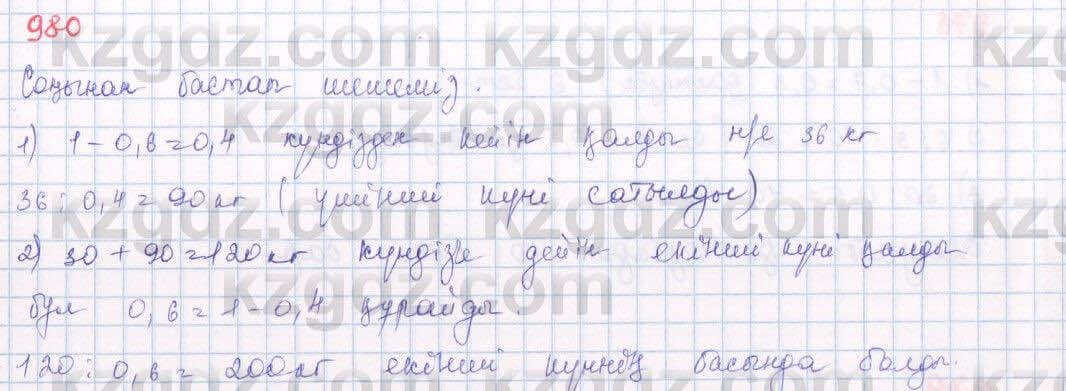 980
Соңынан бастап шешеміз.
1) 1 - 0,6 = 0,4 күндізден кейін қалды н/е 36 кг
36 : 0,4 = 90 кг (үшінші күні сатылды)
2) 30 + 90 = 120 кг күндізге дейін екінші күні қалды
бұл 0,6 = 1 - 0,4 құрайды.
120 : 0,6 = 200 кг екінші күннің басында болды.
kzgdz.com